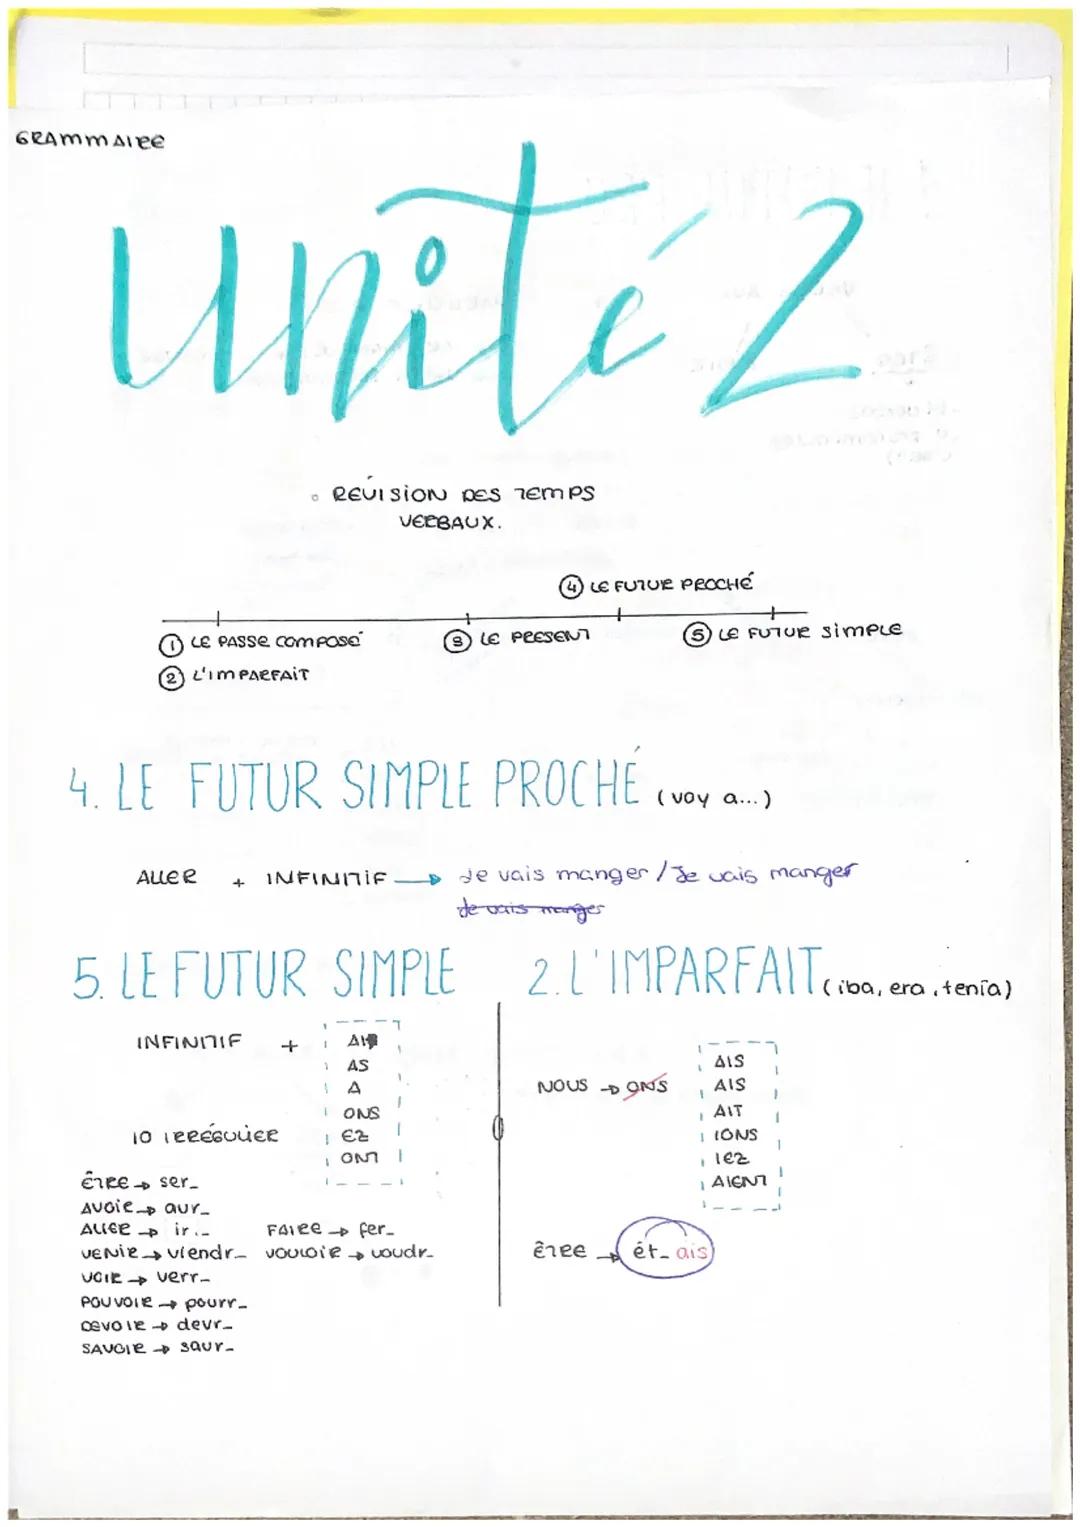 GRAMMAIRE
Unité 2
◦ RÉVISION DES TEMPS
VERBAUX.
④ LE FUTUR PROCHÉ
① LE PASSE COMPOSÉ ③ LE PRESENT ⑤ LE FUTUR SIMPLE
② L'IMPARFAIT
4. LE FUTUR SIMPLE PROCHÉ (voy a...)
ALLER + INFINITIF → Je vais manger / Je vais manger
Je vais manger
5. LE FUTUR SIMPLE
INFINITIF + AI
AS
A
ONS
10 IRRÉGULIER EZ
ONT
ÊTRE → ser_
AVOIR → aur_
ALLER → ir_ FAIRE → fer_
VENIR → viendr_ VOULOIR → voudr_
VOIR → verr_
POUVOIR → pourr_
DEVOIR → devr_
SAVOIR → saur_
2. L'IMPARFAIT (iba, era, tenía)
AIS
NOUS → ONS AIS
AIT
IONS
IEZ
AIENT
ÊTRE → ét_ ais